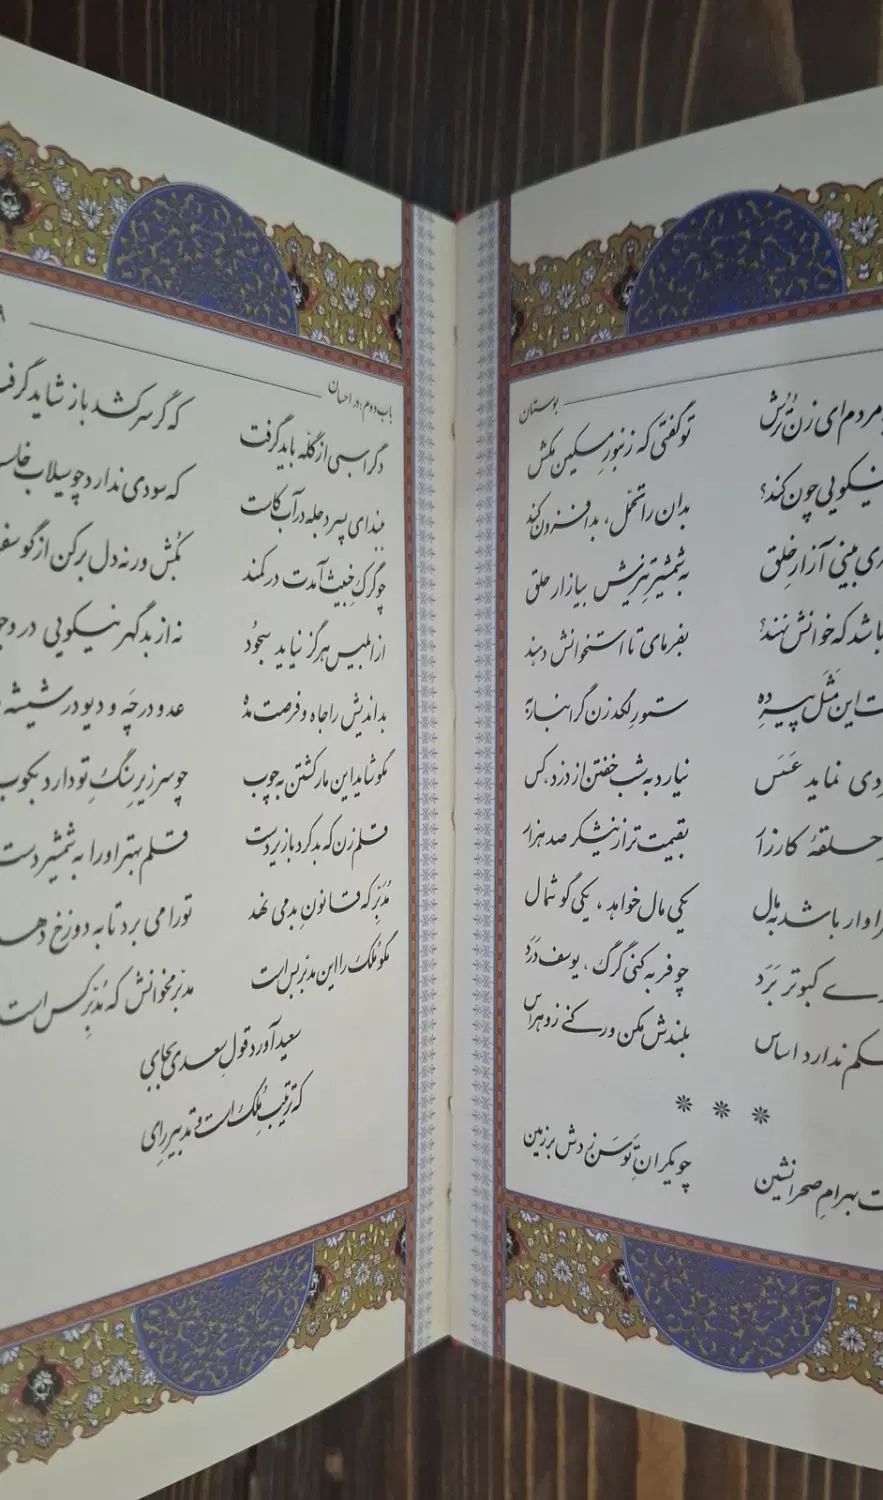 بوستان
مردم ای زن تُرُش تو گفتی که زنبورِ مسکین مکش
نیکویی چون کند؟ بدان را تحمّل، بد افزون کند
بینی آزارِ خلق به شمشیرِ تیزش بیازار حلق
باشد که خوانش نهند؟ بفرمای تا استخوانش دهند
این مَثَل پیرِ ده ستورِ لگدزن گرانبار به
نماید عَسَس نیارد به شب خفتن از دزد، کس
حلقهٔ کارزار بقیمت تر از نیشکر صد هزار
باشد به مال یکی مال خواهد، یکی گوشمال
کبوتر بَرَد چو فربه کنی گرگ، یوسف دَرَد
ندارد اساس بلندش مکن ور کنی زو هراس
* * *
بهرامِ صحرانشین چو یکرانِ توسن زدش بر زمین
باب دوم: در احسان
دگر اسبی از گلّه باید گرفت که گر سر کشد باز شاید گرفت
ببند ای پسر دجله در آب کاست که سودی ندارد چو سیلاب
چو گرگِ خبیث آمدت در کمند بکُش ور نه دل بر کن از
از ابلیس هرگز نیاید سجُود نه از بدگهر نیکویی در
بداندیش را جاه و فرصت مده عدو در چَه و دیو در شیشه
مگو شاید این مار کشتن به چوب چو سر زیرِ سنگِ تو دارد بکوب
قلم‌زن که بد کرد با زیردست قلم بهتر او را به شمشیر دست
مُدبّر که قانونِ بد می نهد تو را می برد تا به دوزخ دهد
مگو مُلک را این مدبّر بس است مدبّر مخوانش که مُدْبِر کس است
سعید آورد قولِ سعدی بجای
که ترتیبِ مُلک است و تدبیرِ رای